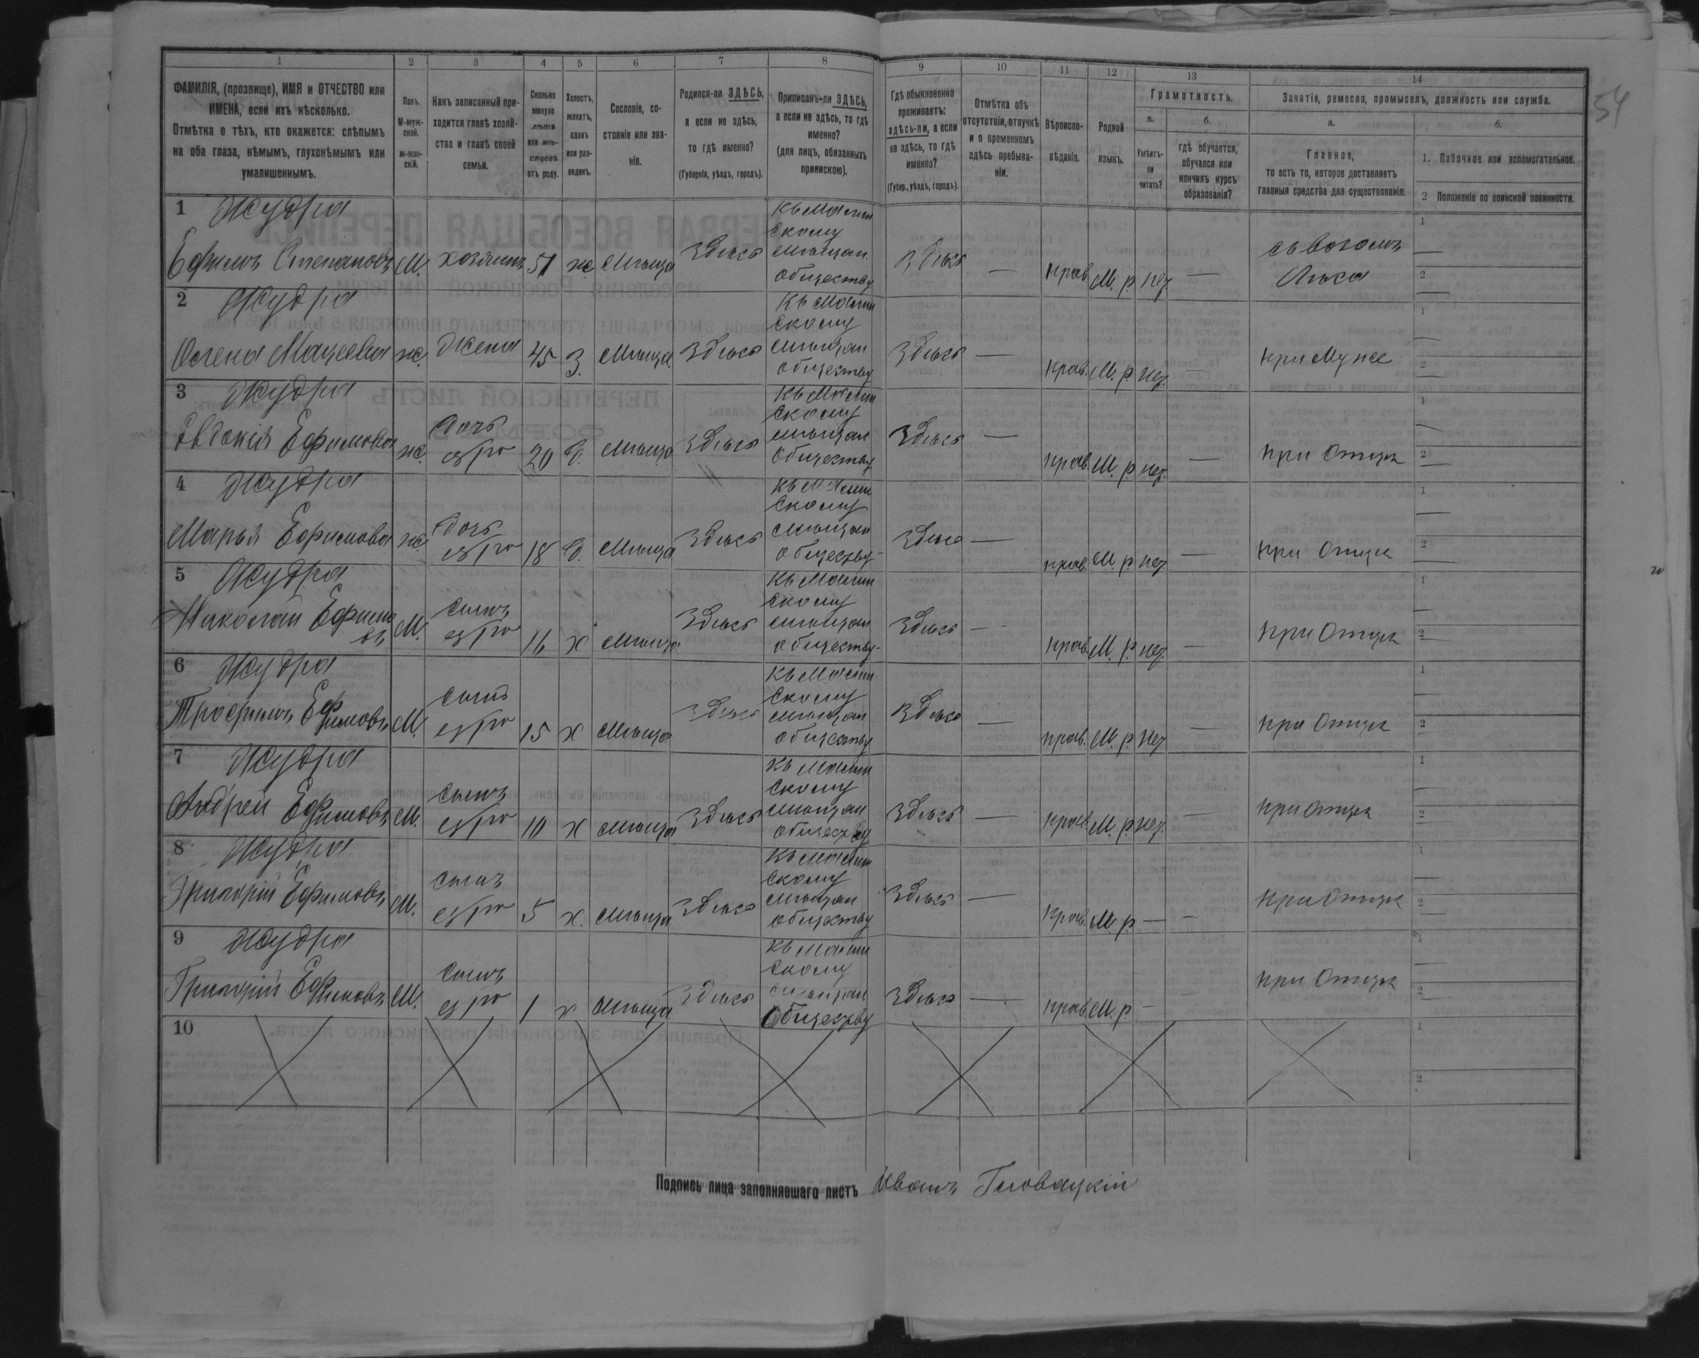 54
1 2 3 4 5 6 7 8 9 10 11 12 13 14
ФАМИЛІЯ, (прозвище), ИМЯ и ОТЧЕСТВО или ИМЕНА, если ихъ нѣсколько.
Отмѣтка о тѣхъ, кто окажется: слѣпымъ на оба глаза, нѣмымъ, глухонѣмымъ или умалишеннымъ.
Полъ.
М-муж-
ской.
ж-жен-
скій.
Какъ записанный при-
ходится главѣ хозяй-
ства и главѣ своей
семьи.
Сколько
минуло
лѣтъ
или мѣ-
сяцевъ
отъ роду.
Холостъ,
женатъ,
вдовъ
или раз-
веденъ.
Сословіе, со-
стояніе или зва-
ніе.
Родился-ли ЗДѢСЬ,
а если не здѣсь,
то гдѣ именно?
(Губернія, уѣздъ, городъ).
Приписанъ-ли ЗДѢСЬ,
а если не здѣсь, то гдѣ
именно?
(для лицъ, обязанныхъ
припискою).
Гдѣ обыкновенно
проживаетъ:
здѣсь-ли, а если
не здѣсь, то гдѣ
именно?
(Губер., уѣздъ, городъ).
Отмѣтка объ
отсутствіи, отлучкѣ
и о временномъ
здѣсь пребыва-
ніи.
Вѣроиспо-
вѣданіе.
Родной
языкъ.
Грамотность.
а.
Умѣетъ-
ли
читать?
б.
гдѣ обучается,
обучался или
кончилъ курсъ
образованія?
Занятія, ремесло, промыселъ, должность или служба.
а.
Главное,
то есть то, которое доставляетъ
главныя средства для существованія.
б.
1. Побочное или вспомогательное.
2 Положеніе по воинской повинности.
1 Жудра
Ефимъ Степановъ М. хозяинъ 51 ж Мѣщан Здѣсь
скому
мѣщан
обществу
Здѣсь — прав. М. р нѣт —
2 Жудра
Мацеева ж. Жена 45 З. Мѣщан Здѣсь
скому
мѣщан
обществу
Здѣсь — прав. М. р нѣт. — при Мужѣ
3 Жудра
Евдокія Ефимова ж. дочь его 20 д. Мѣщан Здѣсь
скому
мѣщан
обществу
Здѣсь — прав. М. р нѣт. — при Отцѣ
4 Жудра
Марья Ефимова ж. дочь его 18 д. Мѣщан Здѣсь
скому
мѣщан
обществу
Здѣсь — прав. М. р нѣт — при Отцѣ
5 Жудра
Николай Ефимовъ М. сынъ его 16 х Мѣщан Здѣсь
скому
мѣщан
обществу
Здѣсь — прав. М. р. нѣт. — при Отцѣ
6 Жудра
Трофимъ Ефимовъ М. сынъ его 15 х Мѣщан Здѣсь
скому
мѣщан
обществу
Здѣсь — прав. М. р нѣт — при Отцѣ
7 Жудра
Андрей Ефимовъ М. сынъ его 10 х Мѣщан Здѣсь
скому
мѣщан
обществу
Здѣсь — прав. М. р нѣт. — при Отцѣ
8 Жудра
Григорій Ефимовъ М. сынъ его 5 х. Мѣщан Здѣсь
скому
мѣщан
обществу
Здѣсь — прав. М. р — — при Отцѣ
9 Жудра
Григорій Ефимовъ М. сынъ его 1 х Мѣщан Здѣсь
скому
мѣщан
Обществу
Здѣсь — прав. М. р — — при Отцѣ
10
Подпись лица заполнявшаго листъ Иванъ Головацкій